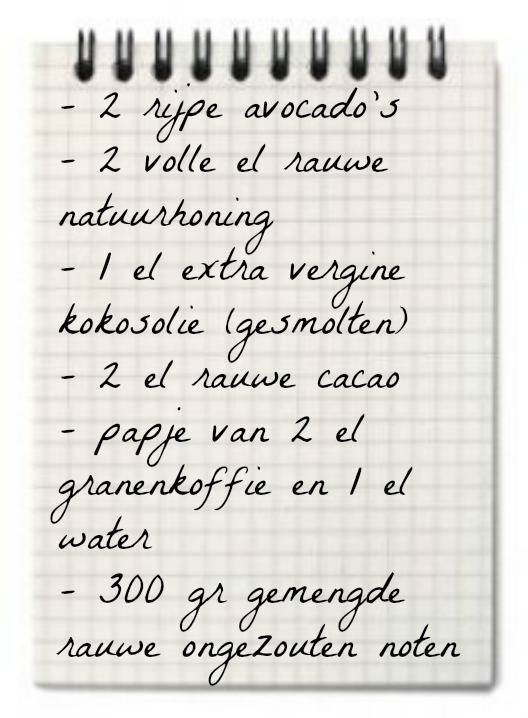 - 2 rijpe avocado's
- 2 volle el rauwe
natuurhoning
- 1 el extra vergine
kokosolie (gesmolten)
- 2 el rauwe cacao
- papje van 2 el
granenkoffie en 1 el
water
- 300 gr gemengde
rauwe ongezouten noten